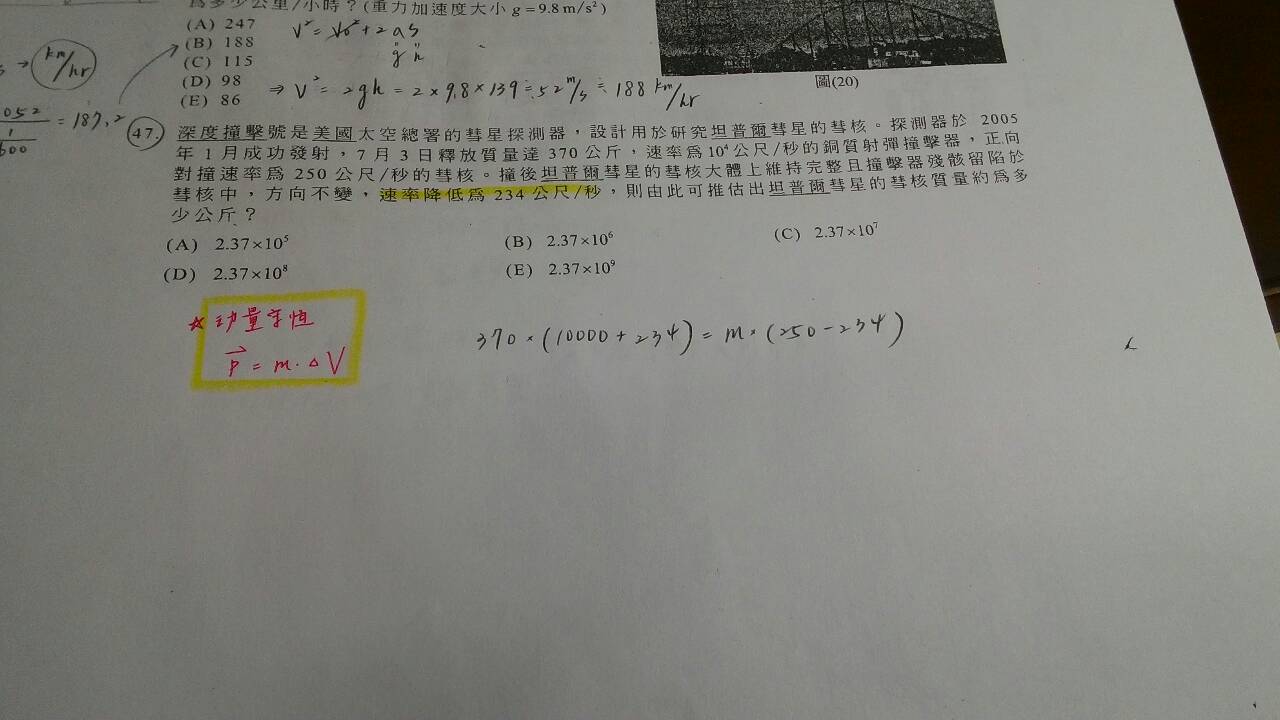 為多少公里/小時?(重力加速度大小 g=9.8 m/s²)
(A) 247
(B) 188
(C) 115
(D) 98
(E) 86
V² = V₀² + 2 a s
g h
⇒ V² = 2gh = 2 × 9.8 × 139 ≒ 52 m/s ≒ 188 km/hr
→ km/hr
= 187.2
圖(20)
47. 深度撞擊號是美國太空總署的彗星探測器,設計用於研究坦普爾彗星的彗核。探測器於 2005
年 1 月成功發射,7 月 3 日釋放質量達 370 公斤,速率為 10⁴ 公尺/秒的銅質射彈撞擊器,正向
對撞速率為 250 公尺/秒的彗核。撞後坦普爾彗星的彗核大體上維持完整且撞擊器殘骸留陷於
彗核中,方向不變,速率降低為 234 公尺/秒,則由此可推估出坦普爾彗星的彗核質量約為多
少公斤?
(A) 2.37×10⁵
(B) 2.37×10⁶
(C) 2.37×10⁷
(D) 2.37×10⁸
(E) 2.37×10⁹
☆ 動量守恆
P⃗ = m · △V
370 × (10000 + 234) = m × (250 - 234)